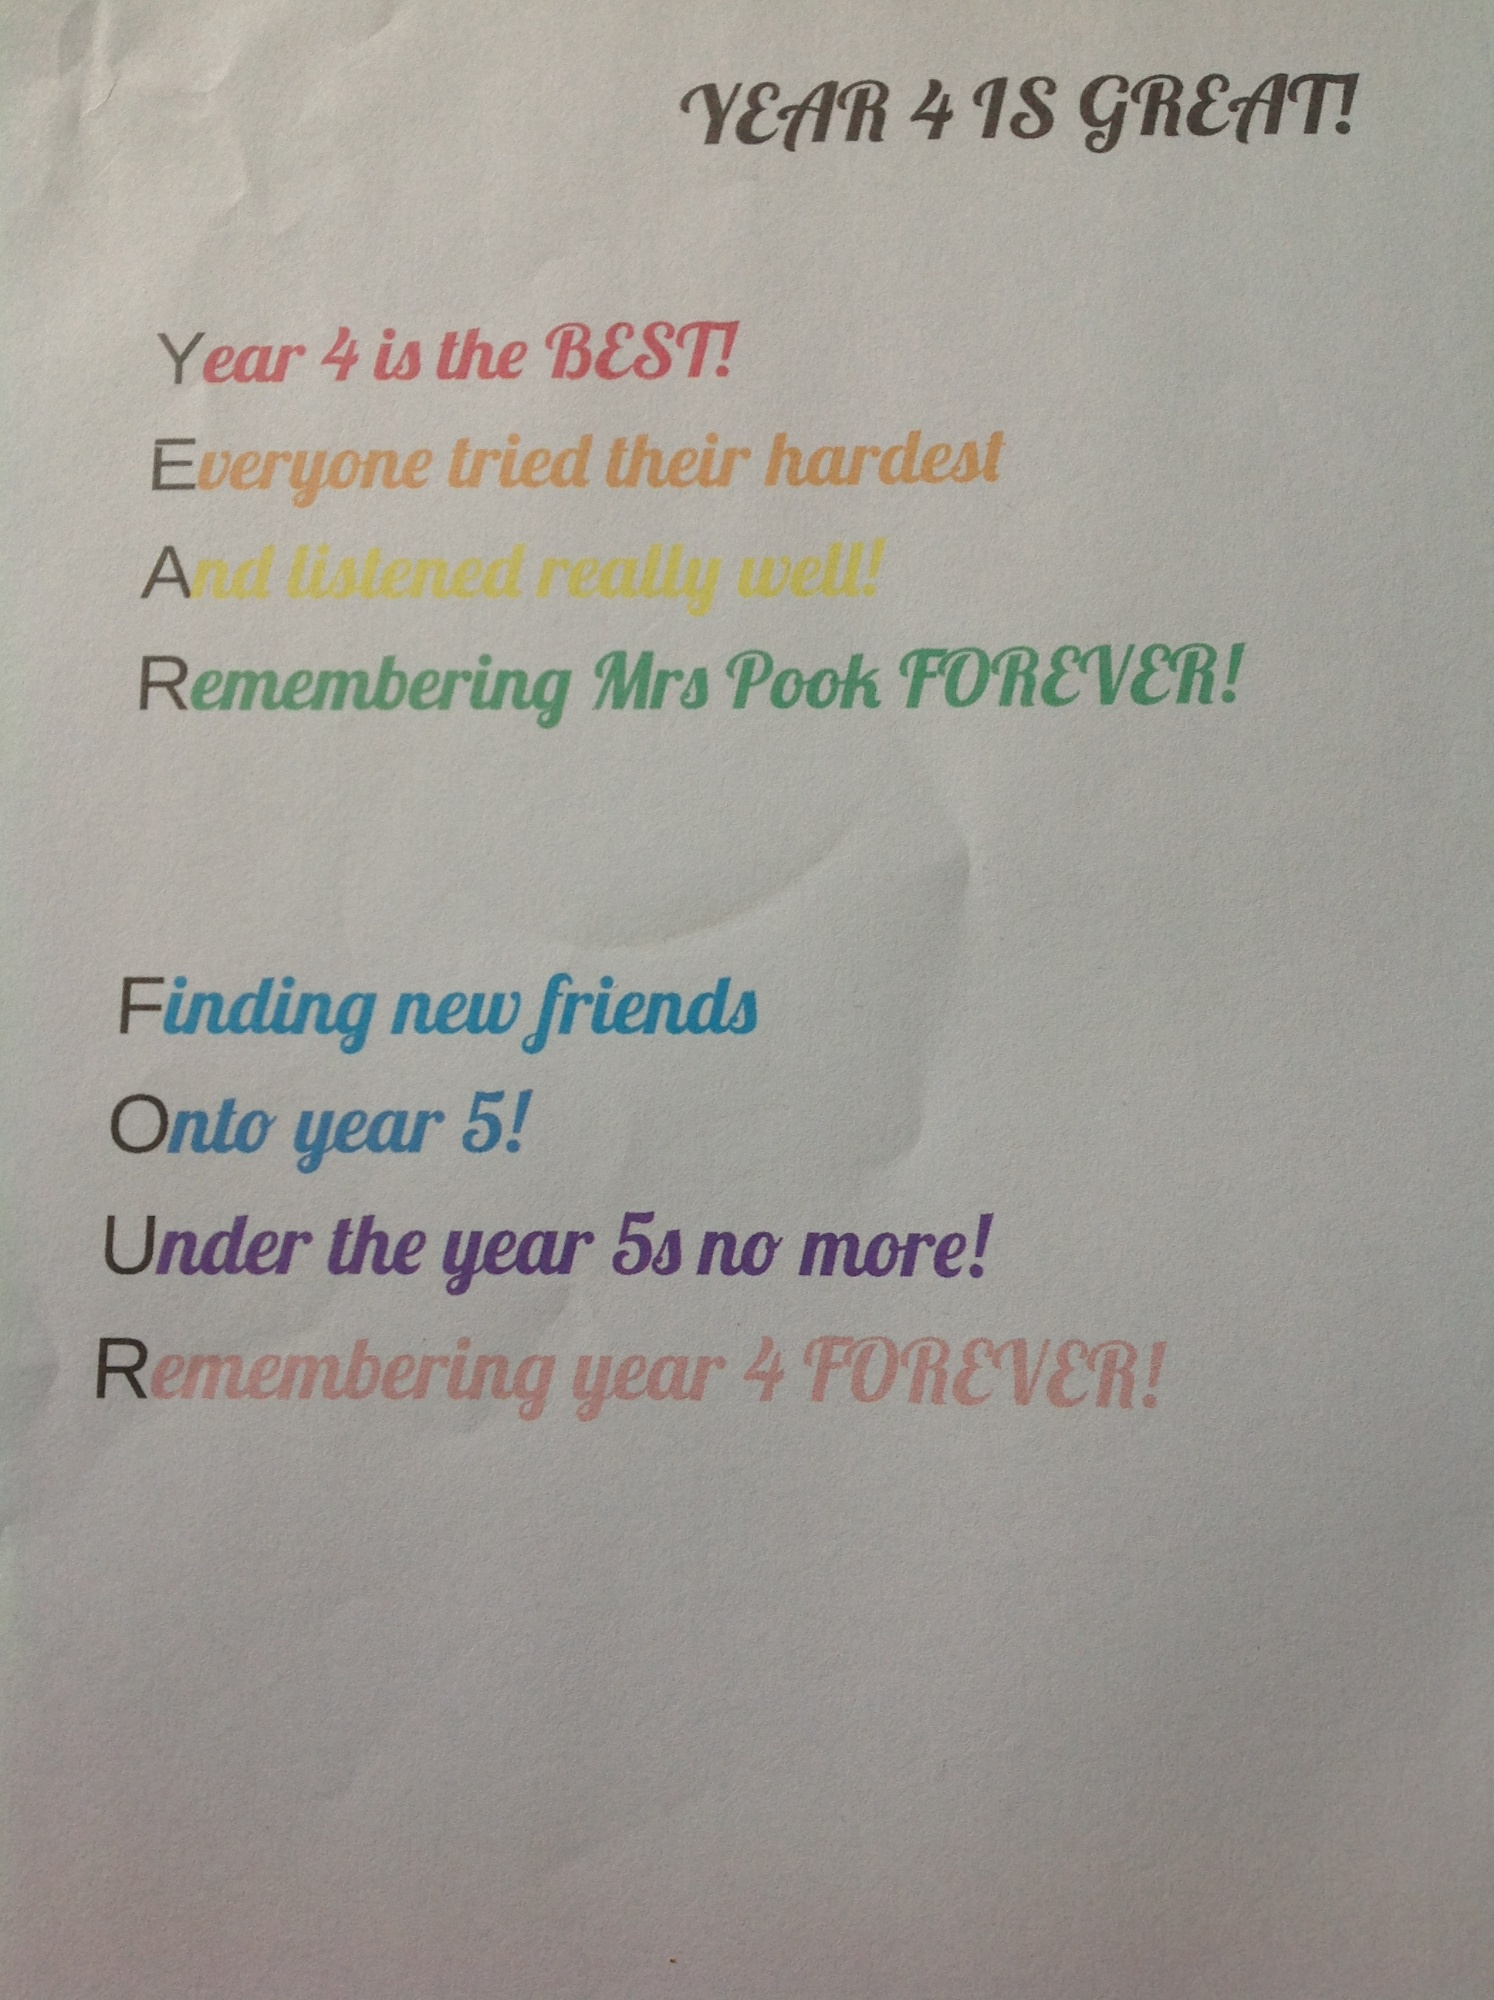 YEAR 4 IS GREAT!
Year 4 is the BEST!
Everyone tried their hardest
And listened really well!
Remembering Mrs Pook FOREVER!
Finding new friends
Onto year 5!
Under the year 5s no more!
Remembering year 4 FOREVER!